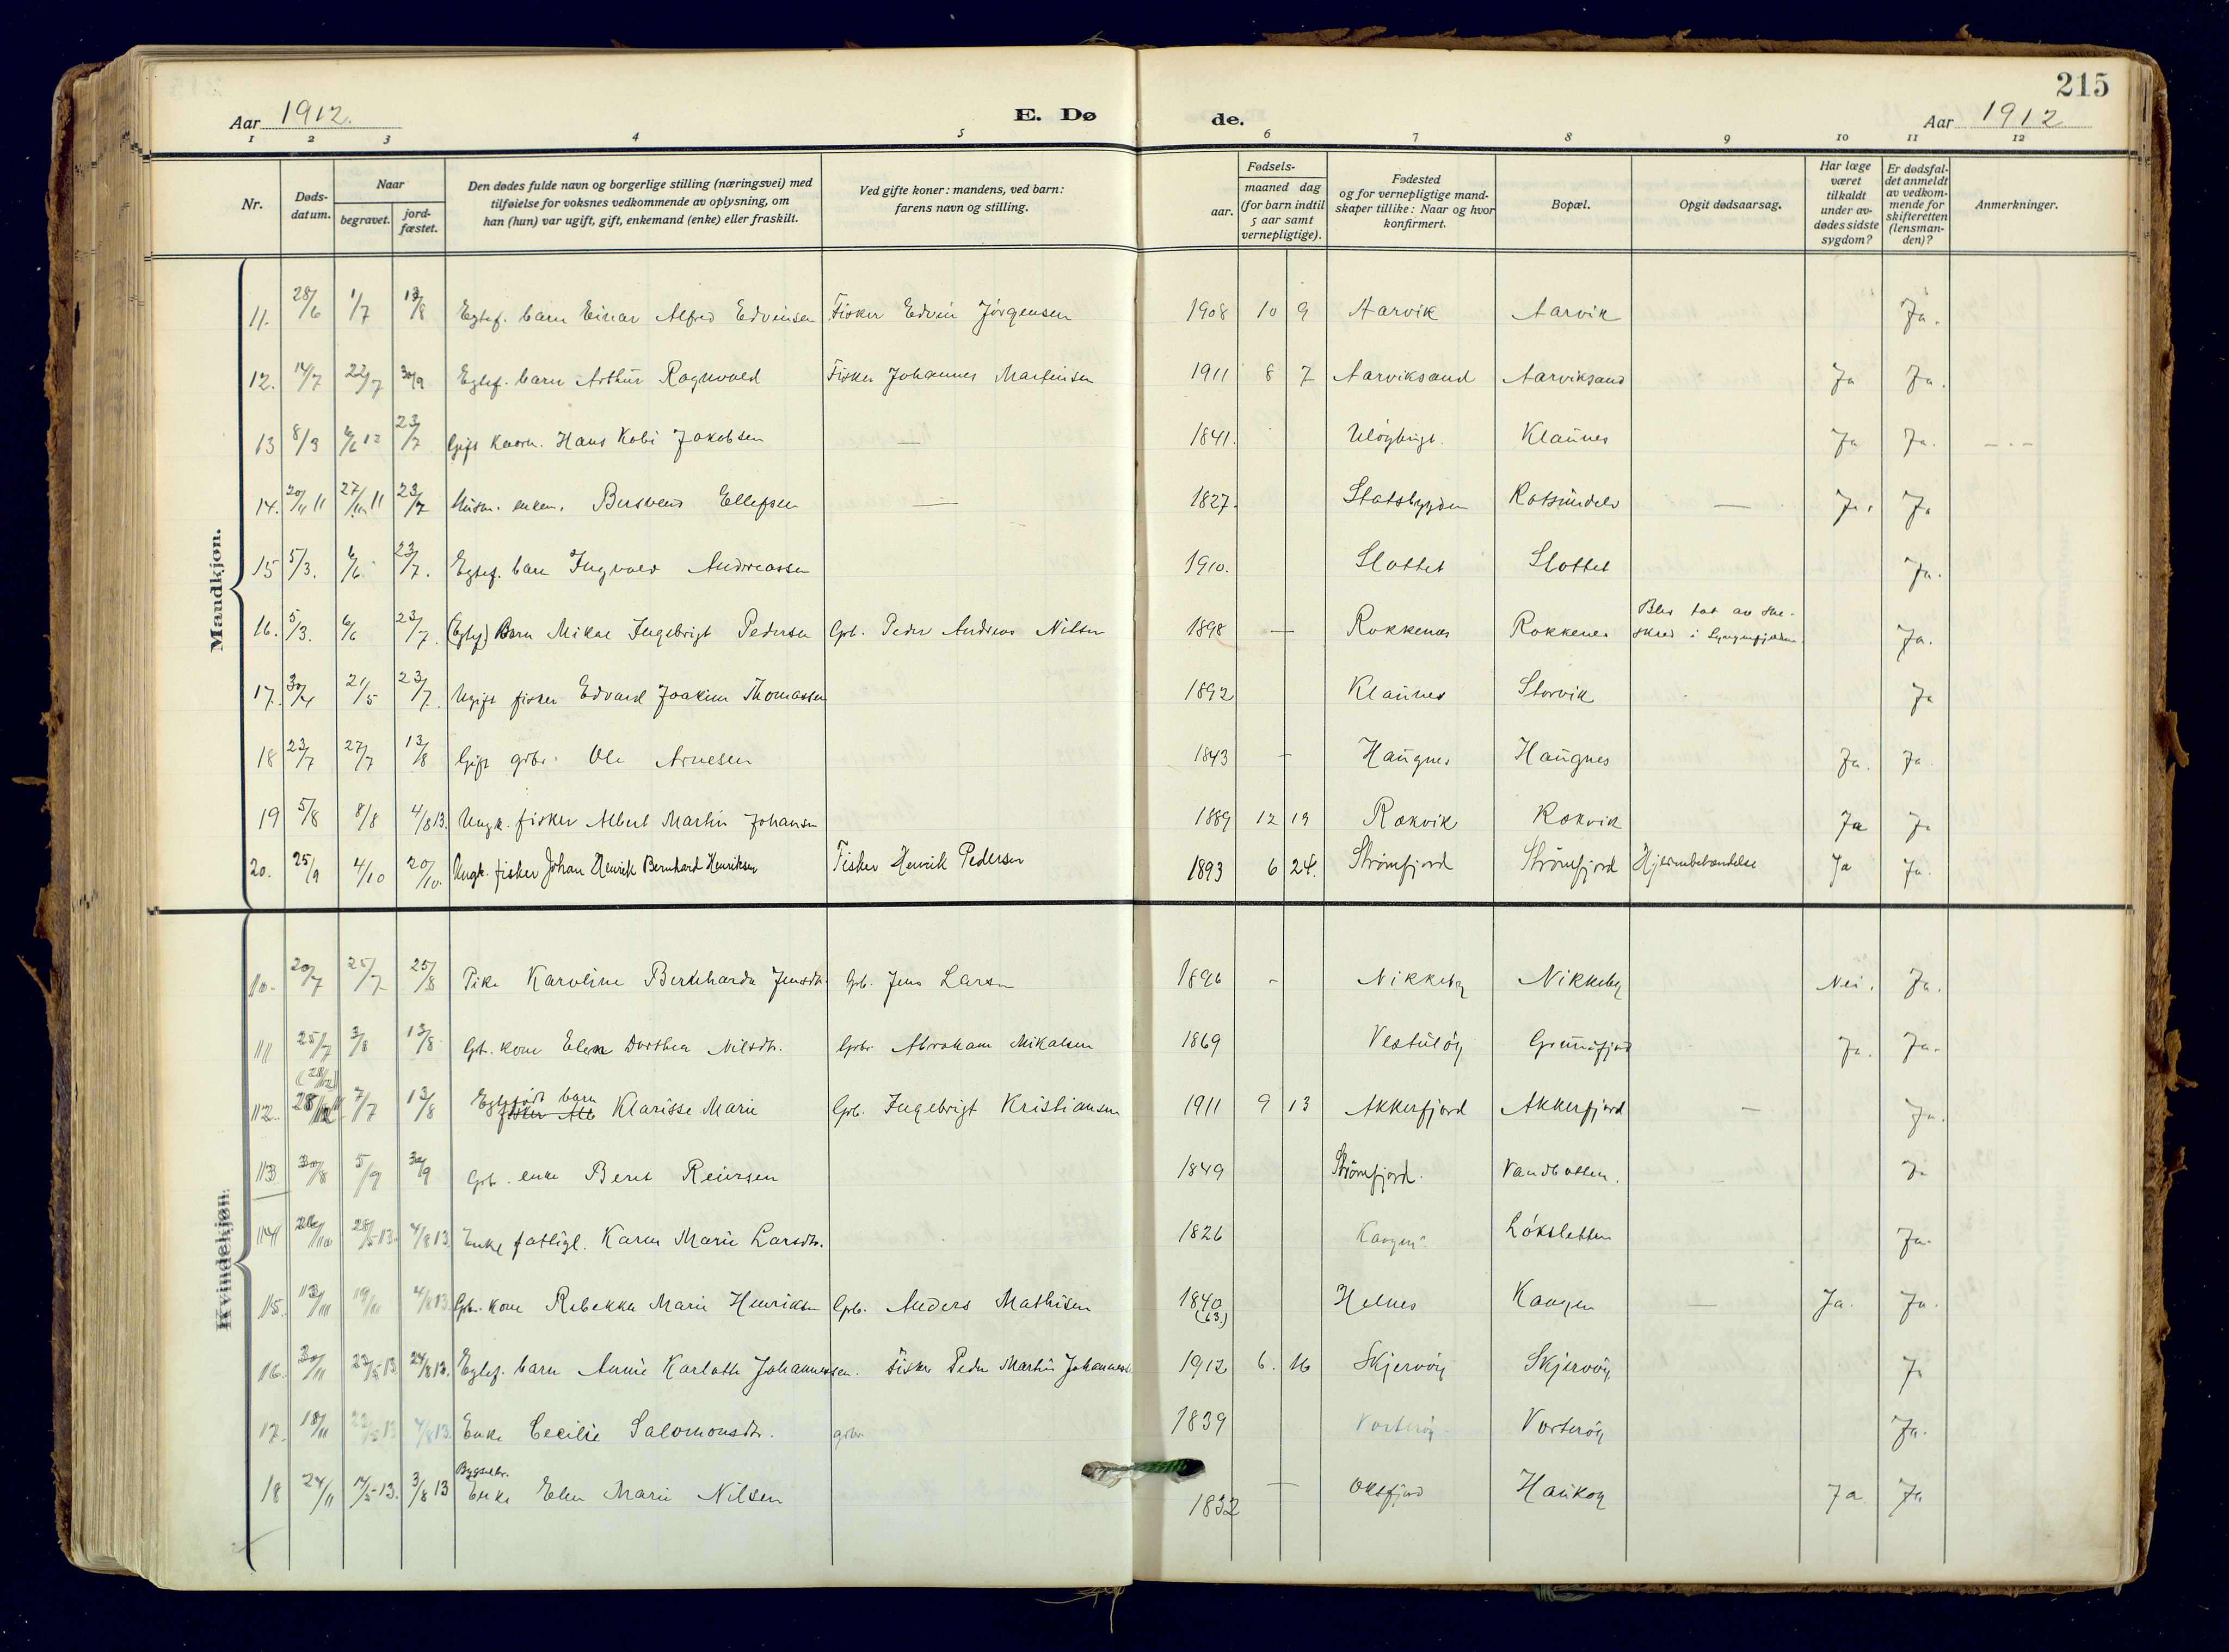 215
Aar 1912.
E. Døde.
Aar 1912
1 2 3 4 5 6 7 8 9 10 11 12
Nr.
Døds-datum.
Naar
begravet.
jord-fæstet.
Den dødes fulde navn og borgerlige stilling (næringsvei) med
tilføielse for voksnes vedkommende av oplysning, om
han (hun) var ugift, gift, enkemand (enke) eller fraskilt.
Ved gifte koner: mandens, ved barn:
farens navn og stilling.
Fødsels-
aar.
maaned dag
(for barn indtil
5 aar samt
vernepligtige).
Fødested
og for vernepligtige mand-
skaper tillike: Naar og hvor
konfirmert.
Bopæl.
Opgit dødsaarsag.
Har læge
været
tilkaldt
under av-
dødes sidste
sygdom?
Er dødsfal-
det anmeldt
av vedkom-
mende for
skifteretten
(lensman-
den)?
Anmerkninger.
Mandkjøn.
11. 28/6 1/7 13/8 Egtef. barn Einar Alfred Edvinsen Fisker Edvin Jörgensen 1908 10 9 Aarvik Aarvik Ja.
12. 14/7 22/7 30/9 Egtef. barn Arthur Ragnvald Fisker Johannes Martinsen 1911 8 7 Aarviksand Aarviksand Ja Ja.
13 8/3 6/6 12 23/7 Gift Hans Kobi Jakobsen — 1841. Klaunes Ja Ja. — . —
14. 20/11 11 27/11 11 23/7 Husm. enkem. Ellefsen — 1827. Statsbygden Rotsundelv — Ja. Ja
15 5/3. 6/6 23/7. Egtef. barn Ingvald Andreassen 1910. Slottet Slottet Ja.
16. 5/3. 6/6 23/7. (Egtef) Barn Mikal Ingebrigt Pedersen Grb. Peder Andreas Nilsen 1898 — Rokkenes Rokkenes Blev tat av sne-
skred i Lyngenfjorden Ja.
17. 30/4 21/5 23/7. Ugift fisker Edvard Joakim Thomassen 1892 Klaunes Storvik Ja
18 23/7 27/7 13/8 Gift grbr. Ole Arnesen 1843 — Haugnes Haugnes Ja. Ja.
19 5/8 8/8 4/8 13. Ungk. fisker Albert Martin Johansen 1889 12 19 Rakvik Rakvik Ja Ja
20. 25/9 4/10 20/10. Ungk. fisker Johan Henrik Bernhard Henriksen Fisker Henrik Pedersen 1893 6 24. Strömfjord Strömfjord Hjernebetændelse Ja Ja.
Kvindekjøn.
10. 20/7 25/7 25/8 Pike Karoline Bernharda Jensdtr. Grb. Jens Larsen 1896 - Nikkeby Nikkeby Nei. Ja.
11 25/7 3/8 13/8 Gb. kone Elen Dorthea Nilsdtr. Grbr. Abraham Mikalsen 1869 Vestuløy Grunnfjord Ja. Ja.
12. 28/12 11 7/7 13/8 Egtefödt barn Klarisse Marie Grb. Ingebrigt Kristiansen 1911 9 13 Akkerfjord Akkerfjord — Ja.
13 30/8 5/9 30/9 Grb. enke Beret Reiersen 1849 Strömfjord. Vandbotten. Ja
14 26/10 28/5-13. 4/8 13. Enke fattigl. Karen Marie Larsdtr. 1826 Kaagen Lökslebtten Ja.
15. 13/11 19/11 4/8 13. Grb. kone Rebekka Marie Henriksen Grb. Anders Mathisen 1840 (63.) Helnes Kaagen — Ja. Ja.
16. 30/11 23/5 13. 24/8 13. Egtef. barn Annie Karlotte Johannessen. Fisker Peder Martin Johannessen 1912 6. 16 Skjervöy Skjervöy Ja
17. 18/11 22/5 13 4/8 13. Enke Cecilie Salomonsdtr. grbr. 1839 Vorteröy Vorteröy Ja.
18 24/11 14/5-13. 3/8 13 Bygselbr. Enke Elen Marie Nilsen 1832 — Oksfjord Haukøy Ja Ja